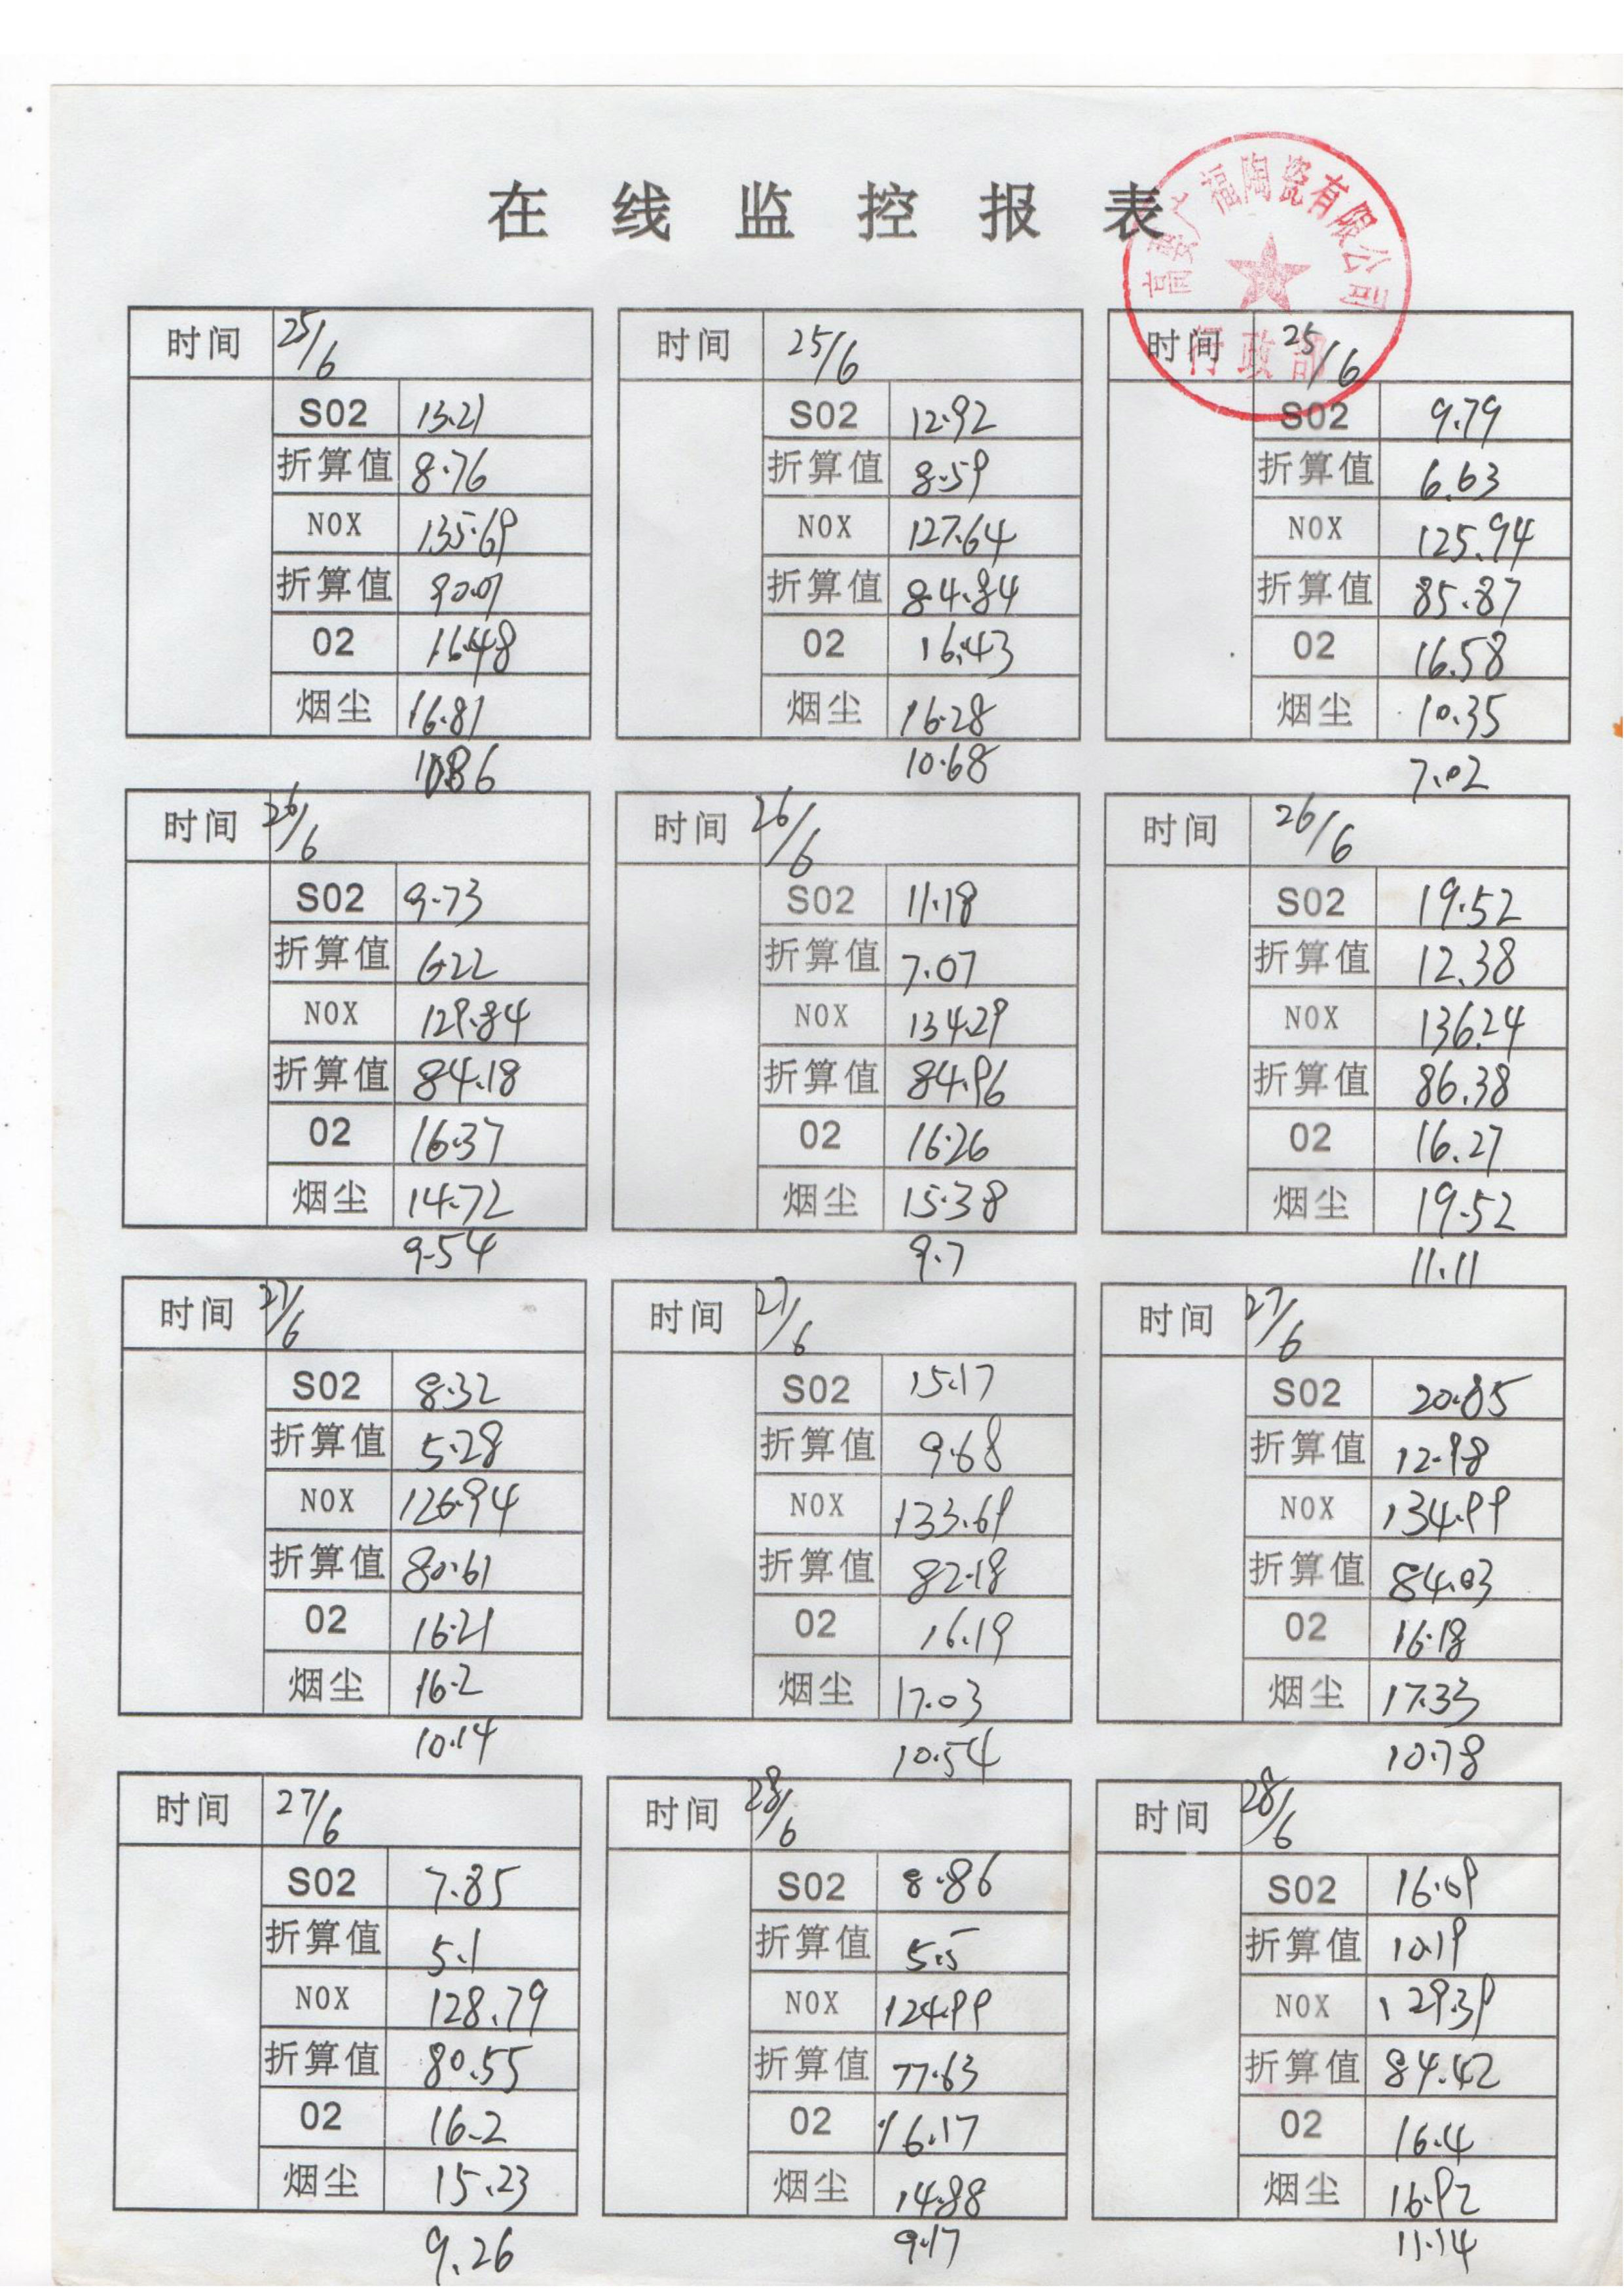 在线监控报表
高要八福陶瓷有限公司
行政部
时间 25/6
SO2 13.21
折算值 8.76
NOX 135.69
折算值 90.07
O2 16.48
烟尘 16.81
10.86
时间 25/6
SO2 12.92
折算值 8.59
NOX 127.64
折算值 84.84
O2 16.43
烟尘 16.28
10.68
时间 25/6
SO2 9.79
折算值 6.63
NOX 125.94
折算值 85.87
O2 16.58
烟尘 10.35
7.02
时间 26/6
SO2 9.73
折算值 6.22
NOX 129.84
折算值 84.18
O2 16.37
烟尘 14.72
9.54
时间 26/6
SO2 11.18
折算值 7.07
NOX 134.29
折算值 84.96
O2 16.26
烟尘 15.38
9.7
时间 26/6
SO2 19.52
折算值 12.38
NOX 136.24
折算值 86.38
O2 16.27
烟尘 19.52
11.11
时间 27/6
SO2 8.32
折算值 5.28
NOX 126.94
折算值 80.61
O2 16.21
烟尘 16.2
10.14
时间 27/6
SO2 15.17
折算值 9.68
NOX 133.69
折算值 82.18
O2 16.19
烟尘 17.03
10.54
时间 27/6
SO2 20.85
折算值 12.98
NOX 134.99
折算值 84.03
O2 16.18
烟尘 17.33
10.78
时间 27/6
SO2 7.85
折算值 5.1
NOX 128.79
折算值 80.55
O2 16.2
烟尘 15.23
9.26
时间 28/6
SO2 8.86
折算值 5.5
NOX 124.99
折算值 77.63
O2 16.17
烟尘 14.88
9.17
时间 28/6
SO2 16.09
折算值 10.19
NOX 129.39
折算值 84.42
O2 16.4
烟尘 16.92
11.14